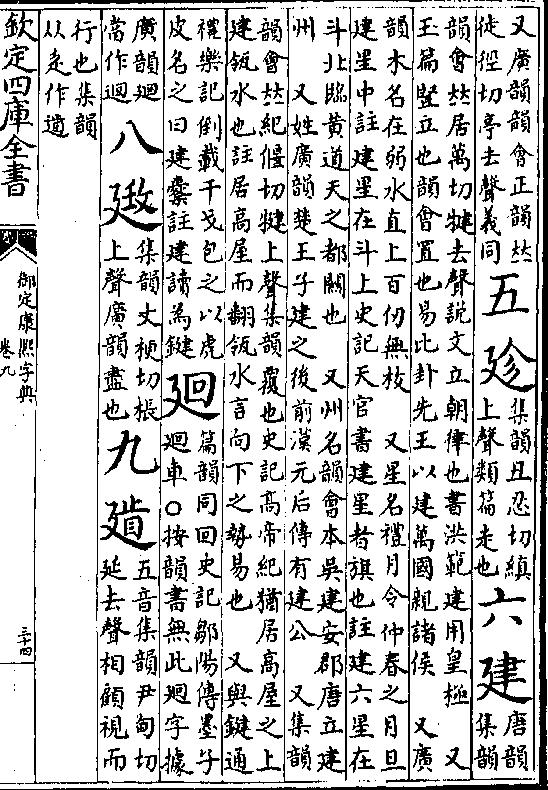 又廣韻韻會正韻𠀤
徒徑切亭去聲義同
五
集韻丑忍切縝
上聲類篇走也
六
建
唐韻
集韻
韻會𠀤居萬切犍去聲說文立朝律也書洪範建用皇極 又
玉篇豎立也韻會置也易比卦先王以建萬國親諸侯 又廣
韻木名在弱水直上百仞無枝 又星名禮月令仲春之月旦
建星中註建星在斗上史記天官書建星者旗也註建六星在
斗北臨黃道天之都關也 又州名韻會本吳建安郡唐立建
州 又姓廣韻楚王子建之後前漢元后傳有建公 又集韻
韻會𠀤紀偃切犍上聲集韻覆也史記高帝紀猶居高屋之上
建瓴水也註居高屋而翻瓴水言向下之勢易也 又與鍵通
禮樂記倒載干戈包之以虎
皮名之曰建櫜註建讀為鍵
廻
篇韻同回史記鄒陽傳墨子
廻車○按韻書無此廻字據
廣韻廻
當作迴
八
集韻丈梗切棖
上聲廣韻盡也
九
五音集韻尹甸切
延去聲相顧視而
行也集韻
从走作
欽定四庫全書
御定康熙字典
卷九
三十四